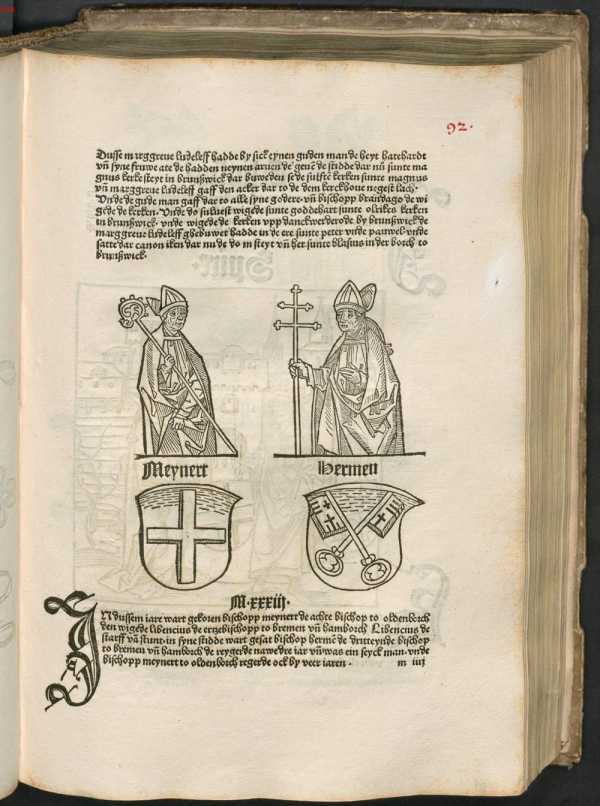 92.
Dusse marggreve lüdeleff hadde by sick eynen guden man de heyt hatehardt
vñ syne fruwe ate de hadden neynen aruen de geuẽ de stidde dar nů sunte ma
gnus kerke steyt in brunßwick dar buweden se de sulftẽ kerken sunte magnus
vñ marggreve lüdeleff gaff den acker dar to de dem kerckhoue negest lach·
Vnde de gude man gaff dar to alle syne godere· vñ bisschopp brandago de wi
gede de kerken· Vnde do suluest wigede sunte goddehart sunte olrikes kerken
in brunßwick· vnde wigede de kerken vpp danckwerderode by brunßwick de
marggreve lüdeleff ghebuwet hadde in de ere sunte peter vnde pauwel· vnde
satte dar canoniken dar nu de dom steyt vñ het sunte blasius in der borch to
brunßwick·
Meynert
Hermen
M·xxxiij·
IN dussem iare wart gekoren bisschopp meynert de achte bischop to oldenborch
den wigede libencius de ertzebisschopp to bremen vñ hamborch Libencius de
starff vñ stunt·in syne stidde wart gesat bischop hermẽ de dritteynde bischop
to bremen vñ hamborch de reygerde nawe dre iar vñ was ein seyck man· vnde
bisschopp meynert to oldenborch regerde ock by veer iaren·
m iiij